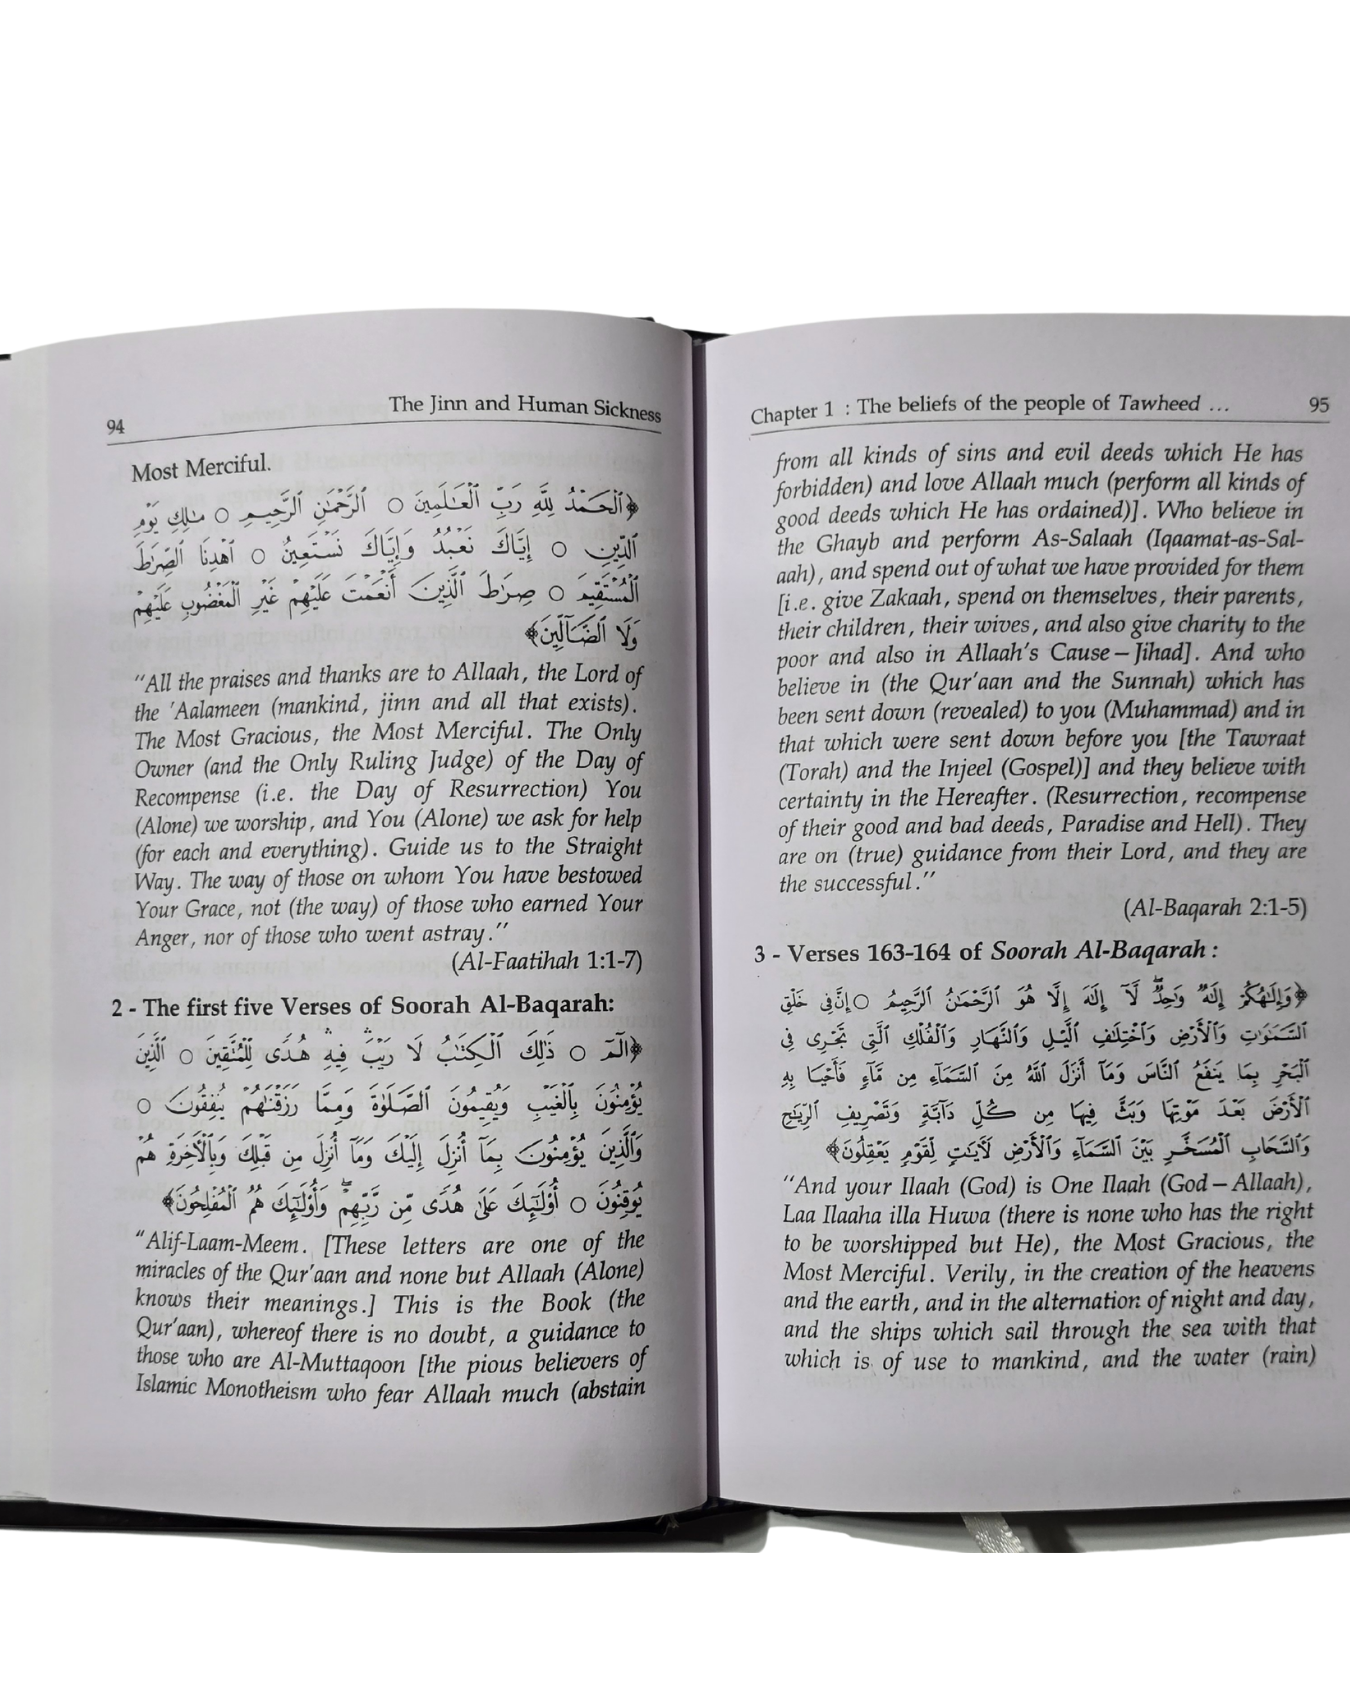 94
The Jinn and Human Sickness
Most Merciful.
﴿ٱلْحَمْدُ لِلَّهِ رَبِّ ٱلْعَـٰلَمِينَ ○ ٱلرَّحْمَـٰنِ ٱلرَّحِيمِ ○ مَـٰلِكِ يَوْمِ
ٱلدِّينِ ○ إِيَّاكَ نَعْبُدُ وَإِيَّاكَ نَسْتَعِينُ ○ ٱهْدِنَا ٱلصِّرَٰطَ
ٱلْمُسْتَقِيمَ ○ صِرَٰطَ ٱلَّذِينَ أَنْعَمْتَ عَلَيْهِمْ غَيْرِ ٱلْمَغْضُوبِ عَلَيْهِمْ
وَلَا ٱلضَّآلِّينَ﴾
“All the praises and thanks are to Allaah, the Lord of
the 'Aalameen (mankind, jinn and all that exists).
The Most Gracious, the Most Merciful. The Only
Owner (and the Only Ruling Judge) of the Day of
Recompense (i.e. the Day of Resurrection) You
(Alone) we worship, and You (Alone) we ask for help
(for each and everything). Guide us to the Straight
Way. The way of those on whom You have bestowed
Your Grace, not (the way) of those who earned Your
Anger, nor of those who went astray.”
(Al-Faatihah 1:1-7)
2 - The first five Verses of Soorah Al-Baqarah:
﴿الٓمٓ ○ ذَٰلِكَ ٱلْكِتَـٰبُ لَا رَيْبَ ۛ فِيهِ ۛ هُدًى لِّلْمُتَّقِينَ ○ ٱلَّذِينَ
يُؤْمِنُونَ بِٱلْغَيْبِ وَيُقِيمُونَ ٱلصَّلَوٰةَ وَمِمَّا رَزَقْنَـٰهُمْ يُنفِقُونَ ○
وَٱلَّذِينَ يُؤْمِنُونَ بِمَآ أُنزِلَ إِلَيْكَ وَمَآ أُنزِلَ مِن قَبْلِكَ وَبِٱلْأَخِرَةِ هُمْ
يُوقِنُونَ ○ أُوْلَـٰٓئِكَ عَلَىٰ هُدًى مِّن رَّبِّهِمْ ۖ وَأُوْلَـٰٓئِكَ هُمُ ٱلْمُفْلِحُونَ﴾
“Alif-Laam-Meem. [These letters are one of the
miracles of the Qur'aan and none but Allaah (Alone)
knows their meanings.] This is the Book (the
Qur'aan), whereof there is no doubt, a guidance to
those who are Al-Muttaqoon [the pious believers of
Islamic Monotheism who fear Allaah much (abstain
Chapter 1 : The beliefs of the people of Tawheed ...
95
from all kinds of sins and evil deeds which He has
forbidden) and love Allaah much (perform all kinds of
good deeds which He has ordained)]. Who believe in
the Ghayb and perform As-Salaah (Iqaamat-as-Sal-
aah), and spend out of what we have provided for them
[i.e. give Zakaah, spend on themselves, their parents,
their children, their wives, and also give charity to the
poor and also in Allaah's Cause—Jihad]. And who
believe in (the Qur'aan and the Sunnah) which has
been sent down (revealed) to you (Muhammad) and in
that which were sent down before you [the Tawraat
(Torah) and the Injeel (Gospel)] and they believe with
certainty in the Hereafter. (Resurrection, recompense
of their good and bad deeds, Paradise and Hell). They
are on (true) guidance from their Lord, and they are
the successful.”
(Al-Baqarah 2:1-5)
3 - Verses 163-164 of Soorah Al-Baqarah :
﴿وَإِلَـٰهُكُمْ إِلَـٰهٌ وَٰحِدٌ ۖ لَّآ إِلَـٰهَ إِلَّا هُوَ ٱلرَّحْمَـٰنُ ٱلرَّحِيمُ ○ إِنَّ فِى خَلْقِ
ٱلسَّمَـٰوَٰتِ وَٱلْأَرْضِ وَٱخْتِلَـٰفِ ٱلَّيْلِ وَٱلنَّهَارِ وَٱلْفُلْكِ ٱلَّتِى تَجْرِى فِى
ٱلْبَحْرِ بِمَا يَنفَعُ ٱلنَّاسَ وَمَآ أَنزَلَ ٱللَّهُ مِنَ ٱلسَّمَآءِ مِن مَّآءٍ فَأَحْيَا بِهِ
ٱلْأَرْضَ بَعْدَ مَوْتِهَا وَبَثَّ فِيهَا مِن كُلِّ دَآبَّةٍ وَتَصْرِيفِ ٱلرِّيَـٰحِ
وَٱلسَّحَابِ ٱلْمُسَخَّرِ بَيْنَ ٱلسَّمَآءِ وَٱلْأَرْضِ لَأَيَـٰتٍ لِّقَوْمٍ يَعْقِلُونَ﴾
“And your Ilaah (God) is One Ilaah (God—Allaah),
Laa Ilaaha illa Huwa (there is none who has the right
to be worshipped but He), the Most Gracious, the
Most Merciful. Verily, in the creation of the heavens
and the earth, and in the alternation of night and day,
and the ships which sail through the sea with that
which is of use to mankind, and the water (rain)